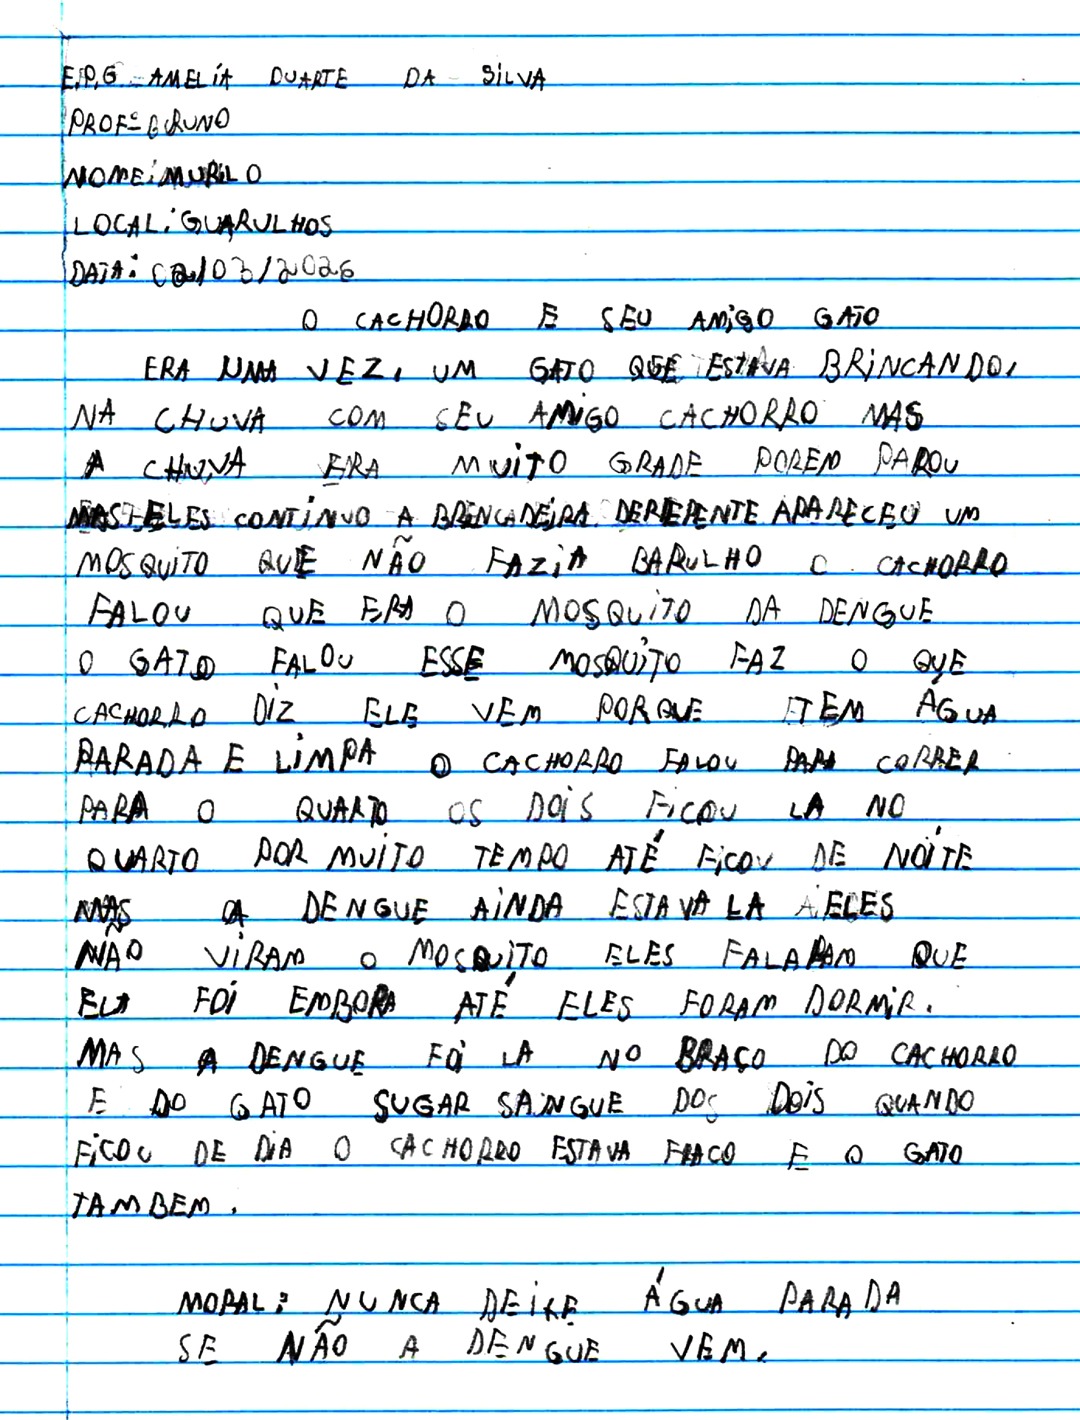 E.P.G - AMELIA DUARTE DA SILVA
PROFº BRUNO
NOME: MURILO
LOCAL: GUARULHOS
DATA: 02/03/2026
O CACHORRO E SEU AMIGO GATO
ERA UMA VEZ, UM GATO QUE ESTAVA BRINCANDO,
NA CHUVA COM SEU AMIGO CACHORRO MAS
A CHUVA ERA MUITO GRADE POREM PAROU
MAS ELES CONTINUO A BRINCADEIRA DEREPENTE APARECEU UM
MOSQUITO QUE NÃO FAZIA BARULHO O CACHORRO
FALOU QUE ERA O MOSQUITO DA DENGUE
O GATO FALOU ESSE MOSQUITO FAZ O QUE
CACHORRO DIZ ELE VEM PORQUE TEM ÁGUA
PARADA E LIMPA O CACHORRO FALOU PARA CORRER
PARA O QUARTO OS DOIS FICOU LA NO
QUARTO POR MUITO TEMPO ATÉ FICOU DE NOITE
MAS A DENGUE AINDA ESTAVA LA ELES
NÃO VIRAM O MOSQUITO ELES FALARAM QUE
ELA FOI EMBORA ATÉ ELES FORAM DORMIR.
MAS A DENGUE FOI LA NO BRAÇO DO CACHORRO
E DO GATO SUGAR SAINGUE DOS DOIS QUANDO
FICOU DE DIA O CACHORRO ESTAVA FRACO E O GATO
TAMBEM.
MORAL: NUNCA DEIXE ÁGUA PARADA
SE NÃO A DENGUE VEM.